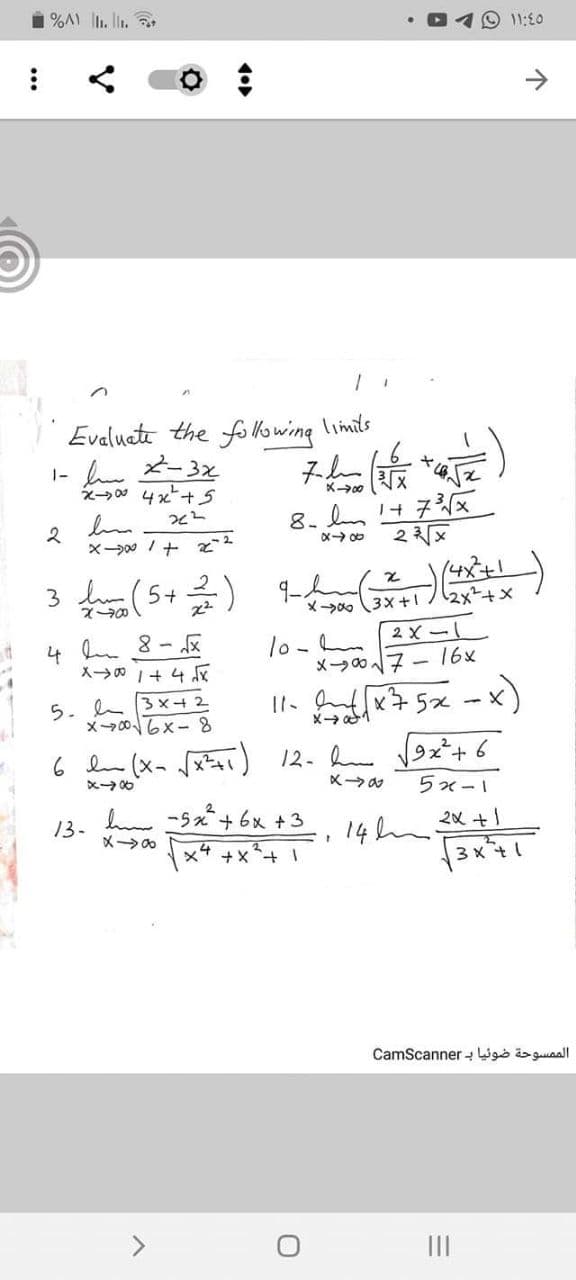 %٨١ ١١:٤٥
Evaluate the following limits
1- lim x→∞ (x² - 3x)/(4x² + 5)
2 lim x→∞ x²/(1 + x⁻²)
3 lim x→∞ (5 + 2/x²)
4 lim x→∞ (8 - √x)/(1 + 4√x)
5. lim x→∞ √((3x + 2)/(6x - 8))
6 lim x→∞ (x - √(x²+1))
7- lim x→∞ (6/∛x + 1/√x)
8- lim x→∞ (1 + 7∛x)/(2∛x)
9- lim x→∞ (x/(3x+1))((4x²+1)/(2x²+x))
10- lim x→∞ √((2x - 1)/(7 - 16x))
11- lim x→∞ (√(x² + 5x) - x)
12- lim x→∞ √(9x² + 6)/(5x - 1)
13- lim x→∞ (-5x² + 6x + 3)/√(x⁴ + x² + 1) , 14 lim (2x + 1)/√(3x² + 1)
الممسوحة ضوئيا بـ CamScanner